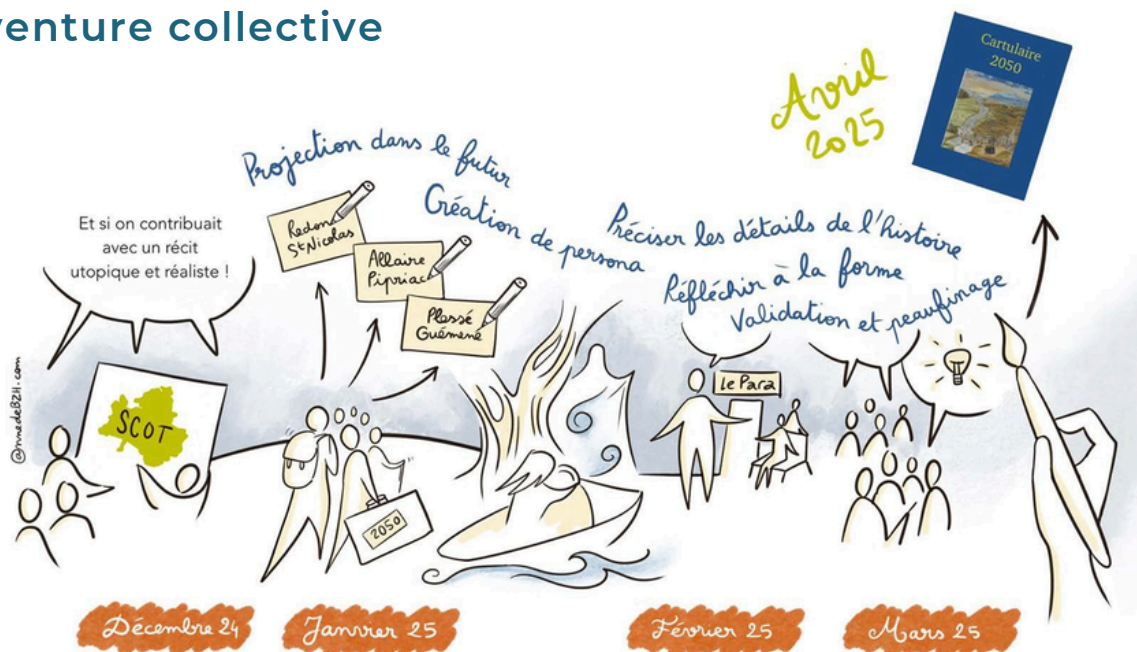 venture collective
Cartulaire
2050
Avril
2025
Projection dans le futur
Création de persona
Préciser les détails de l'histoire
Réfléchir à la forme
Validation et peaufinage
Et si on contribuait
avec un récit
utopique et réaliste !
Redon
St Nicolas
Allaire
Pipriac
Plessé
Guémené
SCOT
2050
le Para
@nnedeBZH.com
Décembre 24
Janvier 25
Février 25
Mars 25